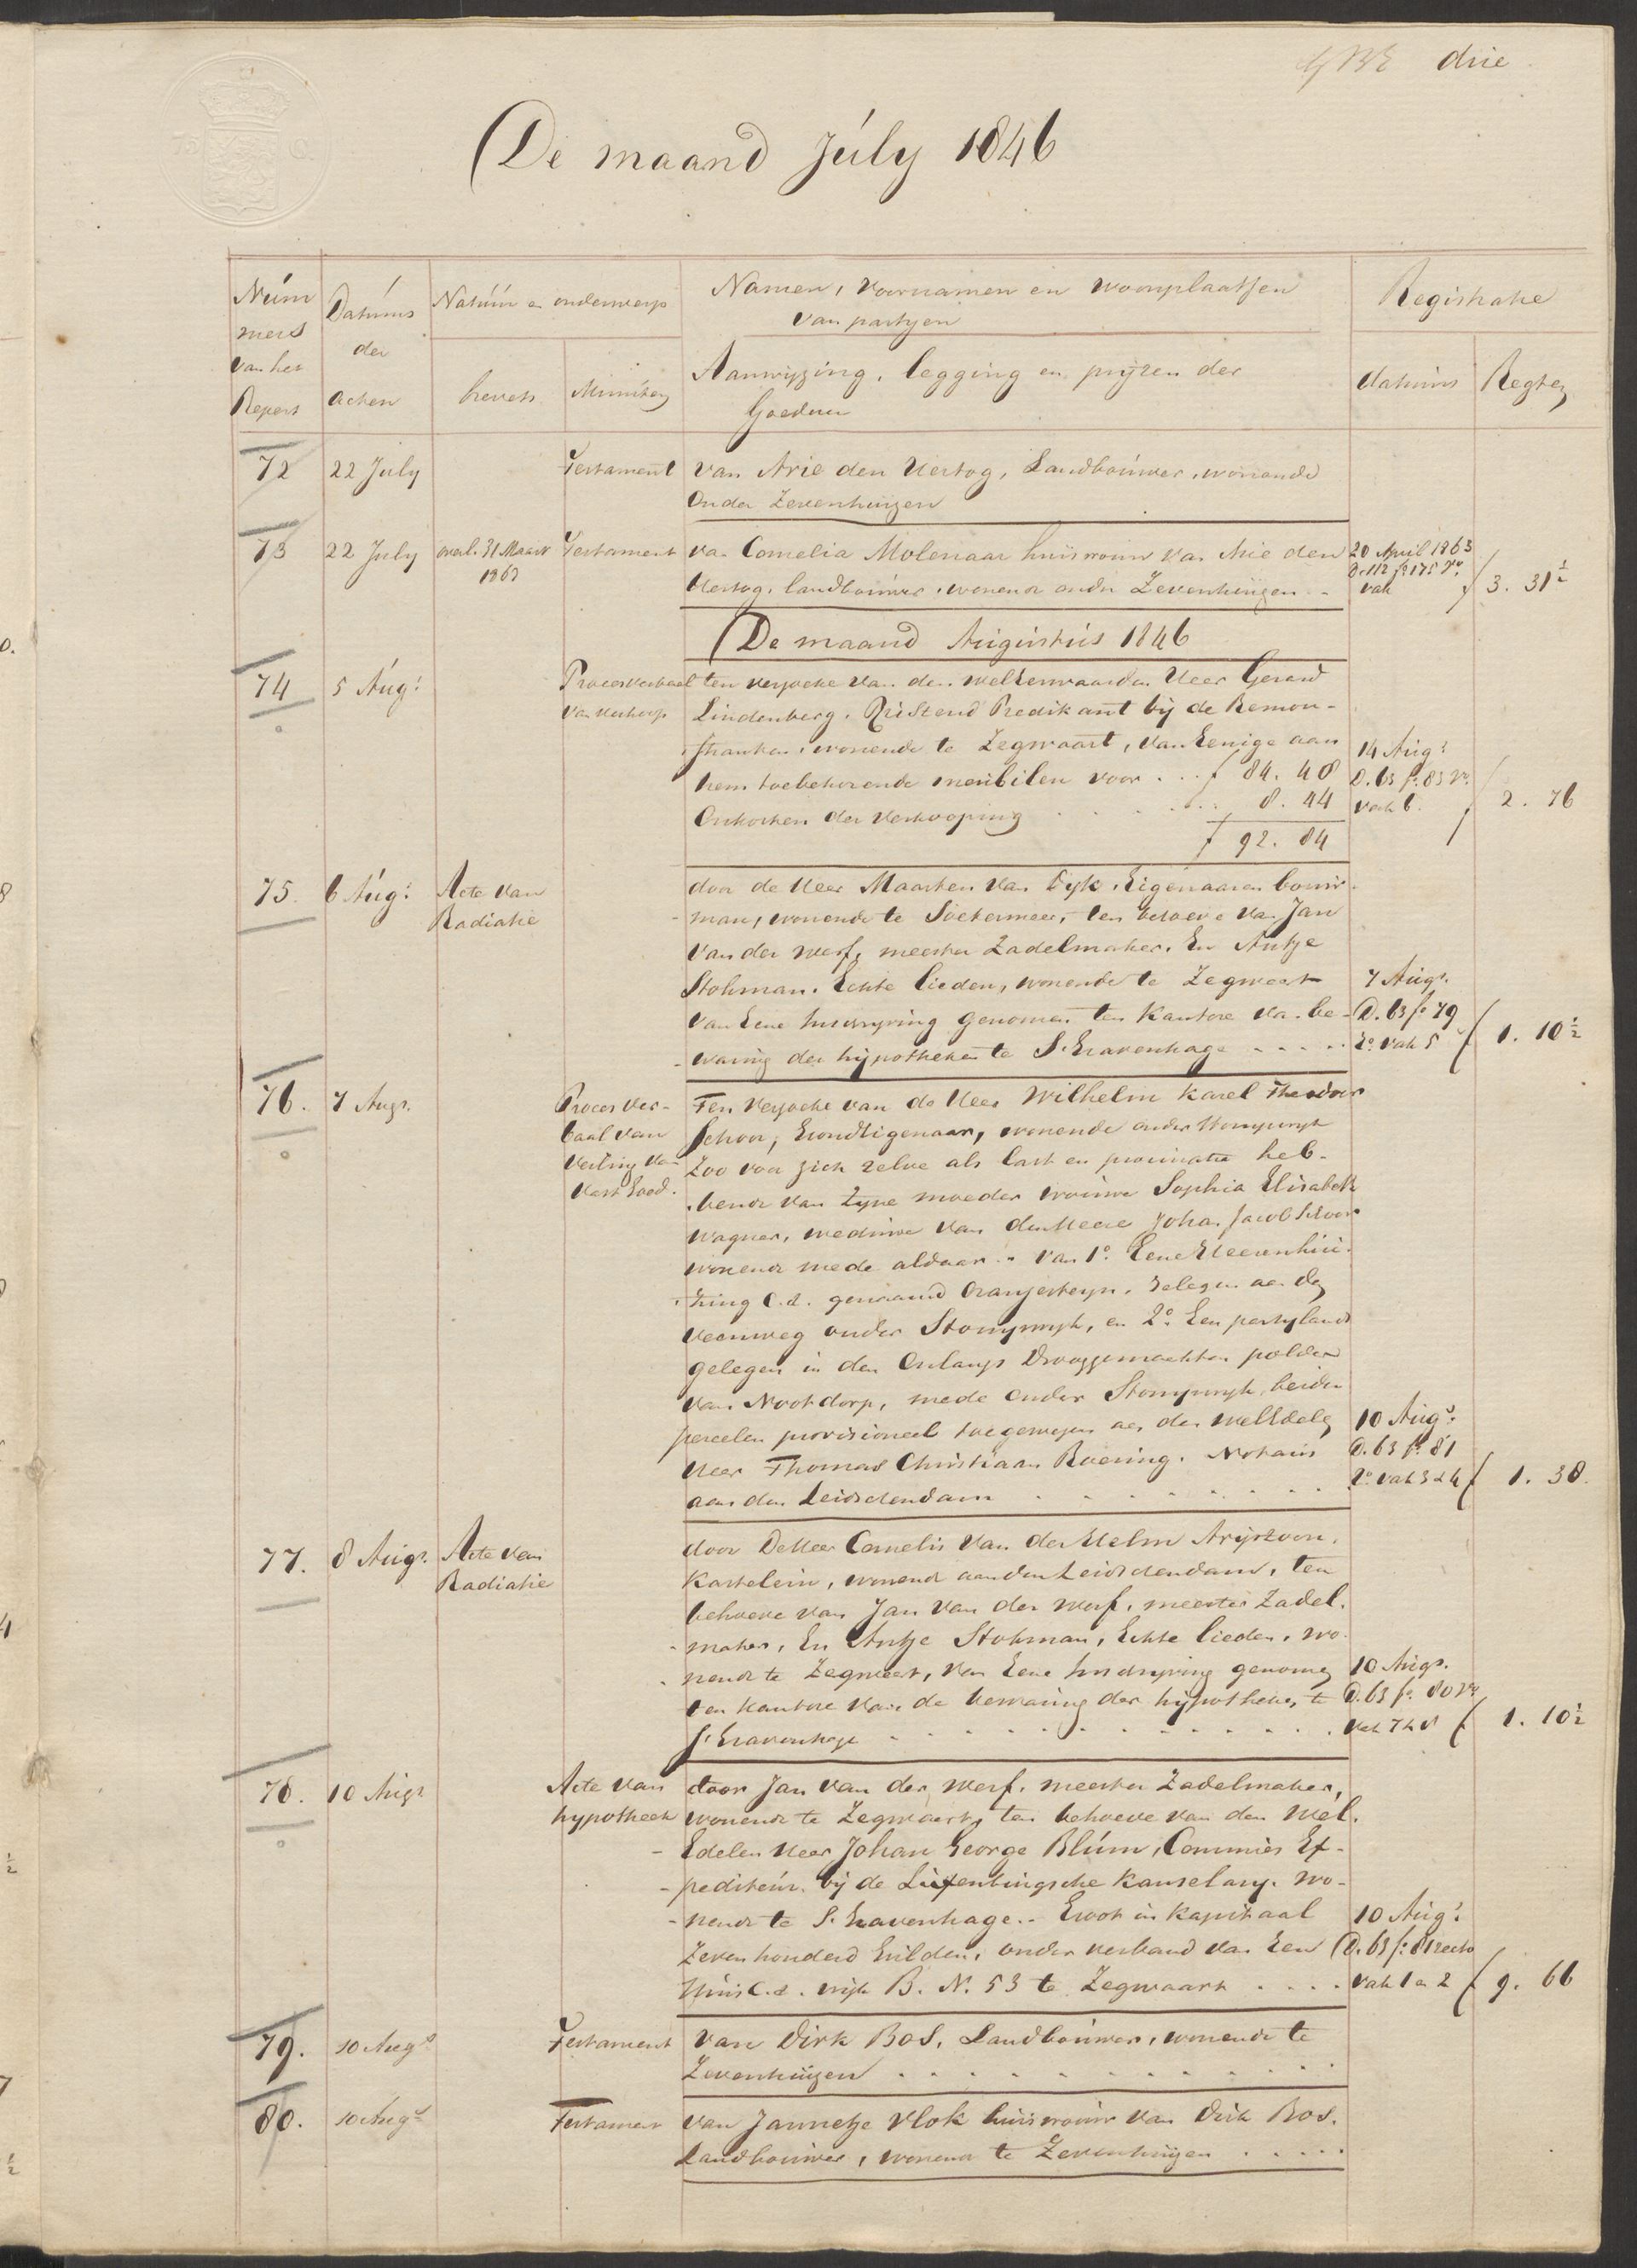 drie
De maand July 1846
Num
mers
van het
Repert
Datums
der
acten
Natuur en onderwerp
brevets
Minuten
Namen, voornamen en woonplaatsen
van partyen
Aanwyzing, legging en pryzen der
Goederen
Registratie
datums
Regten
72 22 July Testament van Arie den Hertog, Landbouwer, wonende
onder Zevenhuizen
73 22 July overl. 31 Maart Testament van Cornelia Molenaar huisvrouw van Arie den 20 April 1863
1863 Hertog, landbouwer, wonende onder Zevenhuizen D. 112 fo 175 Vo
vak f 3. 31½
De maand Augustus 1846
74 5 Aug: Procesverbaal ten verzoeke van den welEerwaarden Heer Gerard
van Verkoop Lindenberg, Rustend Predikant bij de Remon-
stranten, wonende te Zegwaart, van Eenige aan 14 Aug:
hem toebehorende meubilen voor . . . f 84. 40 D. 63 fo. 83 Vo.
Onkosten der Verkooping . . . 8. 44 vak 6. f 2. 76
f 92. 84
75. 6 Aug: Acte van door de Heer Maarten van Dyk, Eigenaar en bouw-
Radiatie man, wonende te Soetermeer, ten behoeve van Jan
van der Werf, meester Zadelmaker, En Antje
Stohman, Echte lieden, wonende te Zegwaart 7 Augs.
van Eene Inschryving genomen ten Kantore van be- D. 63 fo 79
waring der hypotheken te S.Gravenhage - - - - Ro. vak 5 f 1. 10½
76. 7 Augs. Proces Ver- Ten Verzoeke van de Heer Wilhelm Karel Theodoor
baal van Schoor, Grondeigenaar, wonende onder Stompwyk
Veiling van Zoo voor zich zelve als last en procuratie heb-
Vast Goed. bende van zyne moeder vrouwe Sophia Elisabeth
Wagner, weduwe van den Heere Johan Jacob Schoor
wonende mede aldaar. - Van 1o. Eene Heerenhui-
zing C.A. genaamd Oranjesteyn, Gelegen aan den
Veenweg onder Stompwyk, en 2o. Een partyland
gelegen in den Onlangs Drooggemaakten polder
van Nootdorp, mede onder Stompwyk, beide
percelen provisioneel toegewezen aan den WelEdele 10 Augs.
Heer Thomas Christiaan Roering. Notaris D. 63 fo. 81
aan den Leidschendam . . . . . Ro. vak 3 & 4 f 1. 38.
77. 8 Augs. Acte van door De Heer Cornelis van der Helm Aryszoon,
Radiatie Kastelein, wonende aan den Leidschendam, ten
behoeve van Jan van der Werf, meester Zadel-
maker, En Antje Stohman, Echte lieden, wo-
nende te Zegwaart, van Eene Inschryving genomen 10 Augs.
ten Kantore van de bewaring der hypotheken, te D. 63 fo. 80 Vo
S.Gravenhage . . . . . vak 7 & 8 f 1. 10½
78. 10 Augs Acte van door Jan van der Werf, meester Zadelmaker,
hypotheek wonende te Zegwaart, ten behoeve van den Wel-
Edelen Heer Johan George Blúm, Commies Ex-
pediteur, bij de Luxenburgsche Kanselary, wo-
nende te S. Gravenhage. - Groot in Kapitaal 10 Aug:
Zeven honderd Gulden, onder verband van Een D. 63 fo. 81 recto
Huis C.A. wyk B. N. 53 te Zegwaart . . . . vak 1 en 2 f 9. 66
79. 10 Augs Testament van Dirk Bos, Landbouwer, wonende te
Zevenhuizen . . . . .
80. 10 Augs Testament van Jannetje Vlok huisvrouw van Dirk Bos,
Landbouwer, wonende te Zevenhuizen . . . . .